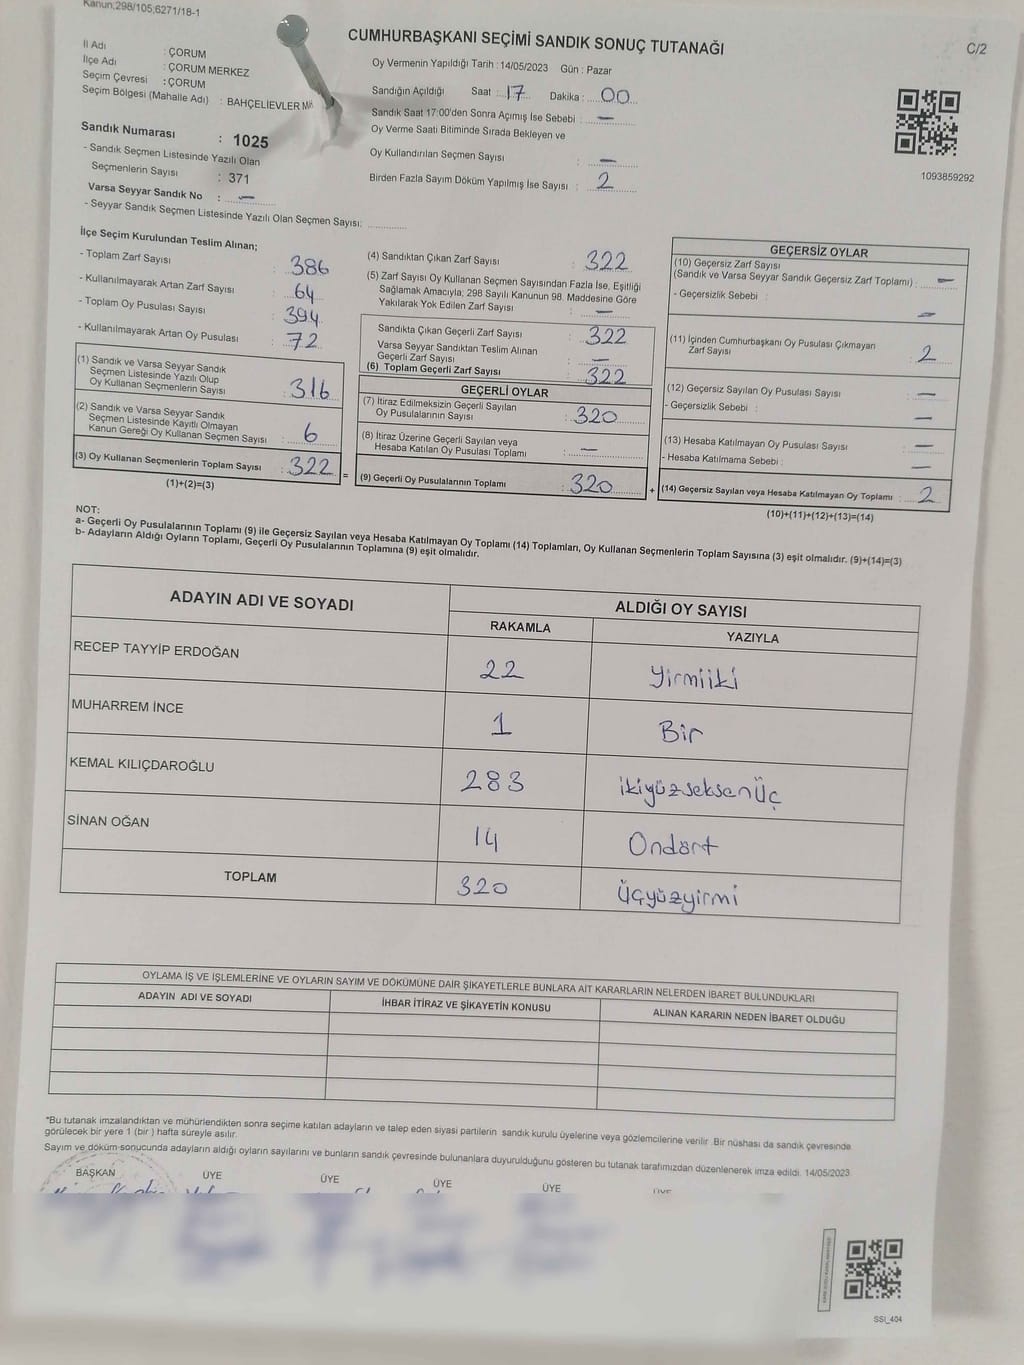 Kanun;298/105;6271/18-1
CUMHURBAŞKANI SEÇİMİ SANDIK SONUÇ TUTANAĞI
C/2
İl Adı : ÇORUM
İlçe Adı : ÇORUM MERKEZ
Seçim Çevresi : ÇORUM
Seçim Bölgesi (Mahalle Adı) : BAHÇELİEVLER MH
Sandık Numarası : 1025
- Sandık Seçmen Listesinde Yazılı Olan
Seçmenlerin Sayısı : 371
Varsa Seyyar Sandık No : —
- Seyyar Sandık Seçmen Listesinde Yazılı Olan Seçmen Sayısı:
Oy Vermenin Yapıldığı Tarih : 14/05/2023 Gün : Pazar
Sandığın Açıldığı Saat : 17 Dakika : 00
Sandık Saat 17:00'den Sonra Açımış İse Sebebi : —
Oy Verme Saati Bitiminde Sırada Bekleyen ve
Oy Kullandırılan Seçmen Sayısı : —
Birden Fazla Sayım Döküm Yapılmış İse Sayısı : 2
1093859292
İlçe Seçim Kurulundan Teslim Alınan;
- Toplam Zarf Sayısı : 386
- Kullanılmayarak Artan Zarf Sayısı : 64
- Toplam Oy Pusulası Sayısı : 394
- Kullanılmayarak Artan Oy Pusulası : 72
(1) Sandık ve Varsa Seyyar Sandık
Seçmen Listesinde Yazılı Olup
Oy Kullanan Seçmenlerin Sayısı : 316
(2) Sandık ve Varsa Seyyar Sandık
Seçmen Listesinde Kayıtlı Olmayan
Kanun Gereği Oy Kullanan Seçmen Sayısı : 6
(3) Oy Kullanan Seçmenlerin Toplam Sayısı : 322 =
(1)+(2)=(3)
(4) Sandıktan Çıkan Zarf Sayısı : 322
(5) Zarf Sayısı Oy Kullanan Seçmen Sayısından Fazla İse, Eşitliği
Sağlamak Amacıyla, 298 Sayılı Kanunun 98. Maddesine Göre
Yakılarak Yok Edilen Zarf Sayısı : —
Sandıkta Çıkan Geçerli Zarf Sayısı : 322
Varsa Seyyar Sandıktan Teslim Alınan
Geçerli Zarf Sayısı : —
(6) Toplam Geçerli Zarf Sayısı : 322
GEÇERLİ OYLAR
(7) İtiraz Edilmeksizin Geçerli Sayılan
Oy Pusulalarının Sayısı : 320
(8) İtiraz Üzerine Geçerli Sayılan veya
Hesaba Katılan Oy Pusulası Toplamı : —
(9) Geçerli Oy Pusulalarının Toplamı : 320 +
GEÇERSİZ OYLAR
(10) Geçersiz Zarf Sayısı
(Sandık ve Varsa Seyyar Sandık Geçersiz Zarf Toplamı) : —
- Geçersizlik Sebebi : —
(11) İçinden Cumhurbaşkanı Oy Pusulası Çıkmayan
Zarf Sayısı : 2
(12) Geçersiz Sayılan Oy Pusulası Sayısı : —
- Geçersizlik Sebebi : —
(13) Hesaba Katılmayan Oy Pusulası Sayısı : —
- Hesaba Katılmama Sebebi : —
(14) Geçersiz Sayılan veya Hesaba Katılmayan Oy Toplamı : 2
(10)+(11)+(12)+(13)=(14)
NOT:
a- Geçerli Oy Pusulalarının Toplamı (9) ile Geçersiz Sayılan veya Hesaba Katılmayan Oy Toplamı (14) Toplamları, Oy Kullanan Seçmenlerin Toplam Sayısına (3) eşit olmalıdır. (9)+(14)=(3)
b- Adayların Aldığı Oyların Toplamı, Geçerli Oy Pusulalarının Toplamına (9) eşit olmalıdır.
ADAYIN ADI VE SOYADI ALDIĞI OY SAYISI
RAKAMLA YAZIYLA
RECEP TAYYİP ERDOĞAN 22 Yirmiiki
MUHARREM İNCE 1 Bir
KEMAL KILIÇDAROĞLU 283 ikiyüzseksenÜç
SİNAN OĞAN 14 Ondört
TOPLAM 320 Üçyüzyirmi
OYLAMA İŞ VE İŞLEMLERİNE VE OYLARIN SAYIM VE DÖKÜMÜNE DAİR ŞİKAYETLERLE BUNLARA AİT KARARLARIN NELERDEN İBARET BULUNDUKLARI
ADAYIN ADI VE SOYADI İHBAR İTİRAZ VE ŞİKAYETİN KONUSU ALINAN KARARIN NEDEN İBARET OLDUĞU
*Bu tutanak imzalandıktan ve mühürlendikten sonra seçime katılan adayların ve talep eden siyasi partilerin sandık kurulu üyelerine veya gözlemcilerine verilir .Bir nüshası da sandık çevresinde
görülecek bir yere 1 (bir ) hafta süreyle asılır.
Sayım ve döküm sonucunda adayların aldığı oyların sayılarını ve bunların sandık çevresinde bulunanlara duyurulduğunu gösteren bu tutanak tarafımızdan düzenlenerek imza edildi. 14/05/2023
BAŞKAN ÜYE ÜYE ÜYE ÜYE ÜYE
SSI_404